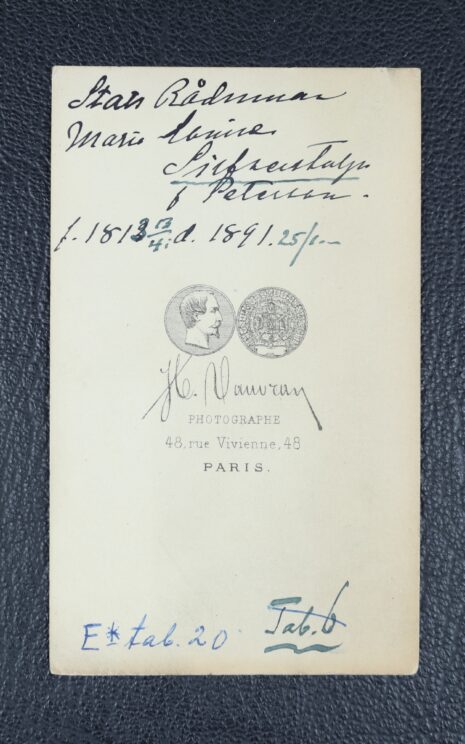 Stats Rådinnan
Marie Louise
Silfverstolpe
f Peterson.
f. 1813 13/4; d. 1891. 25/1
H. Vauvray
PHOTOGRAPHE
48, rue Vivienne, 48
PARIS.
E* tab. 20 Tab. 6